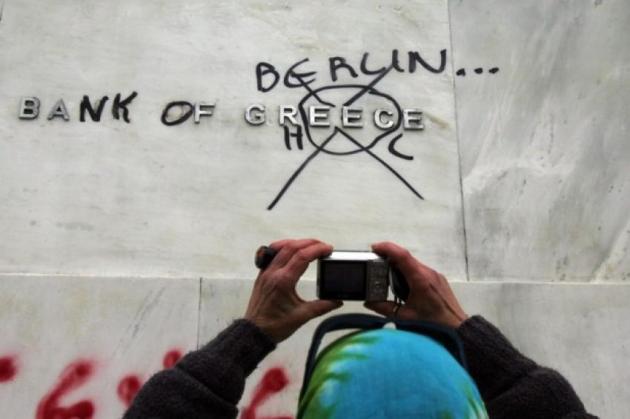 BERLIN...
BANK OF GREECE
H C